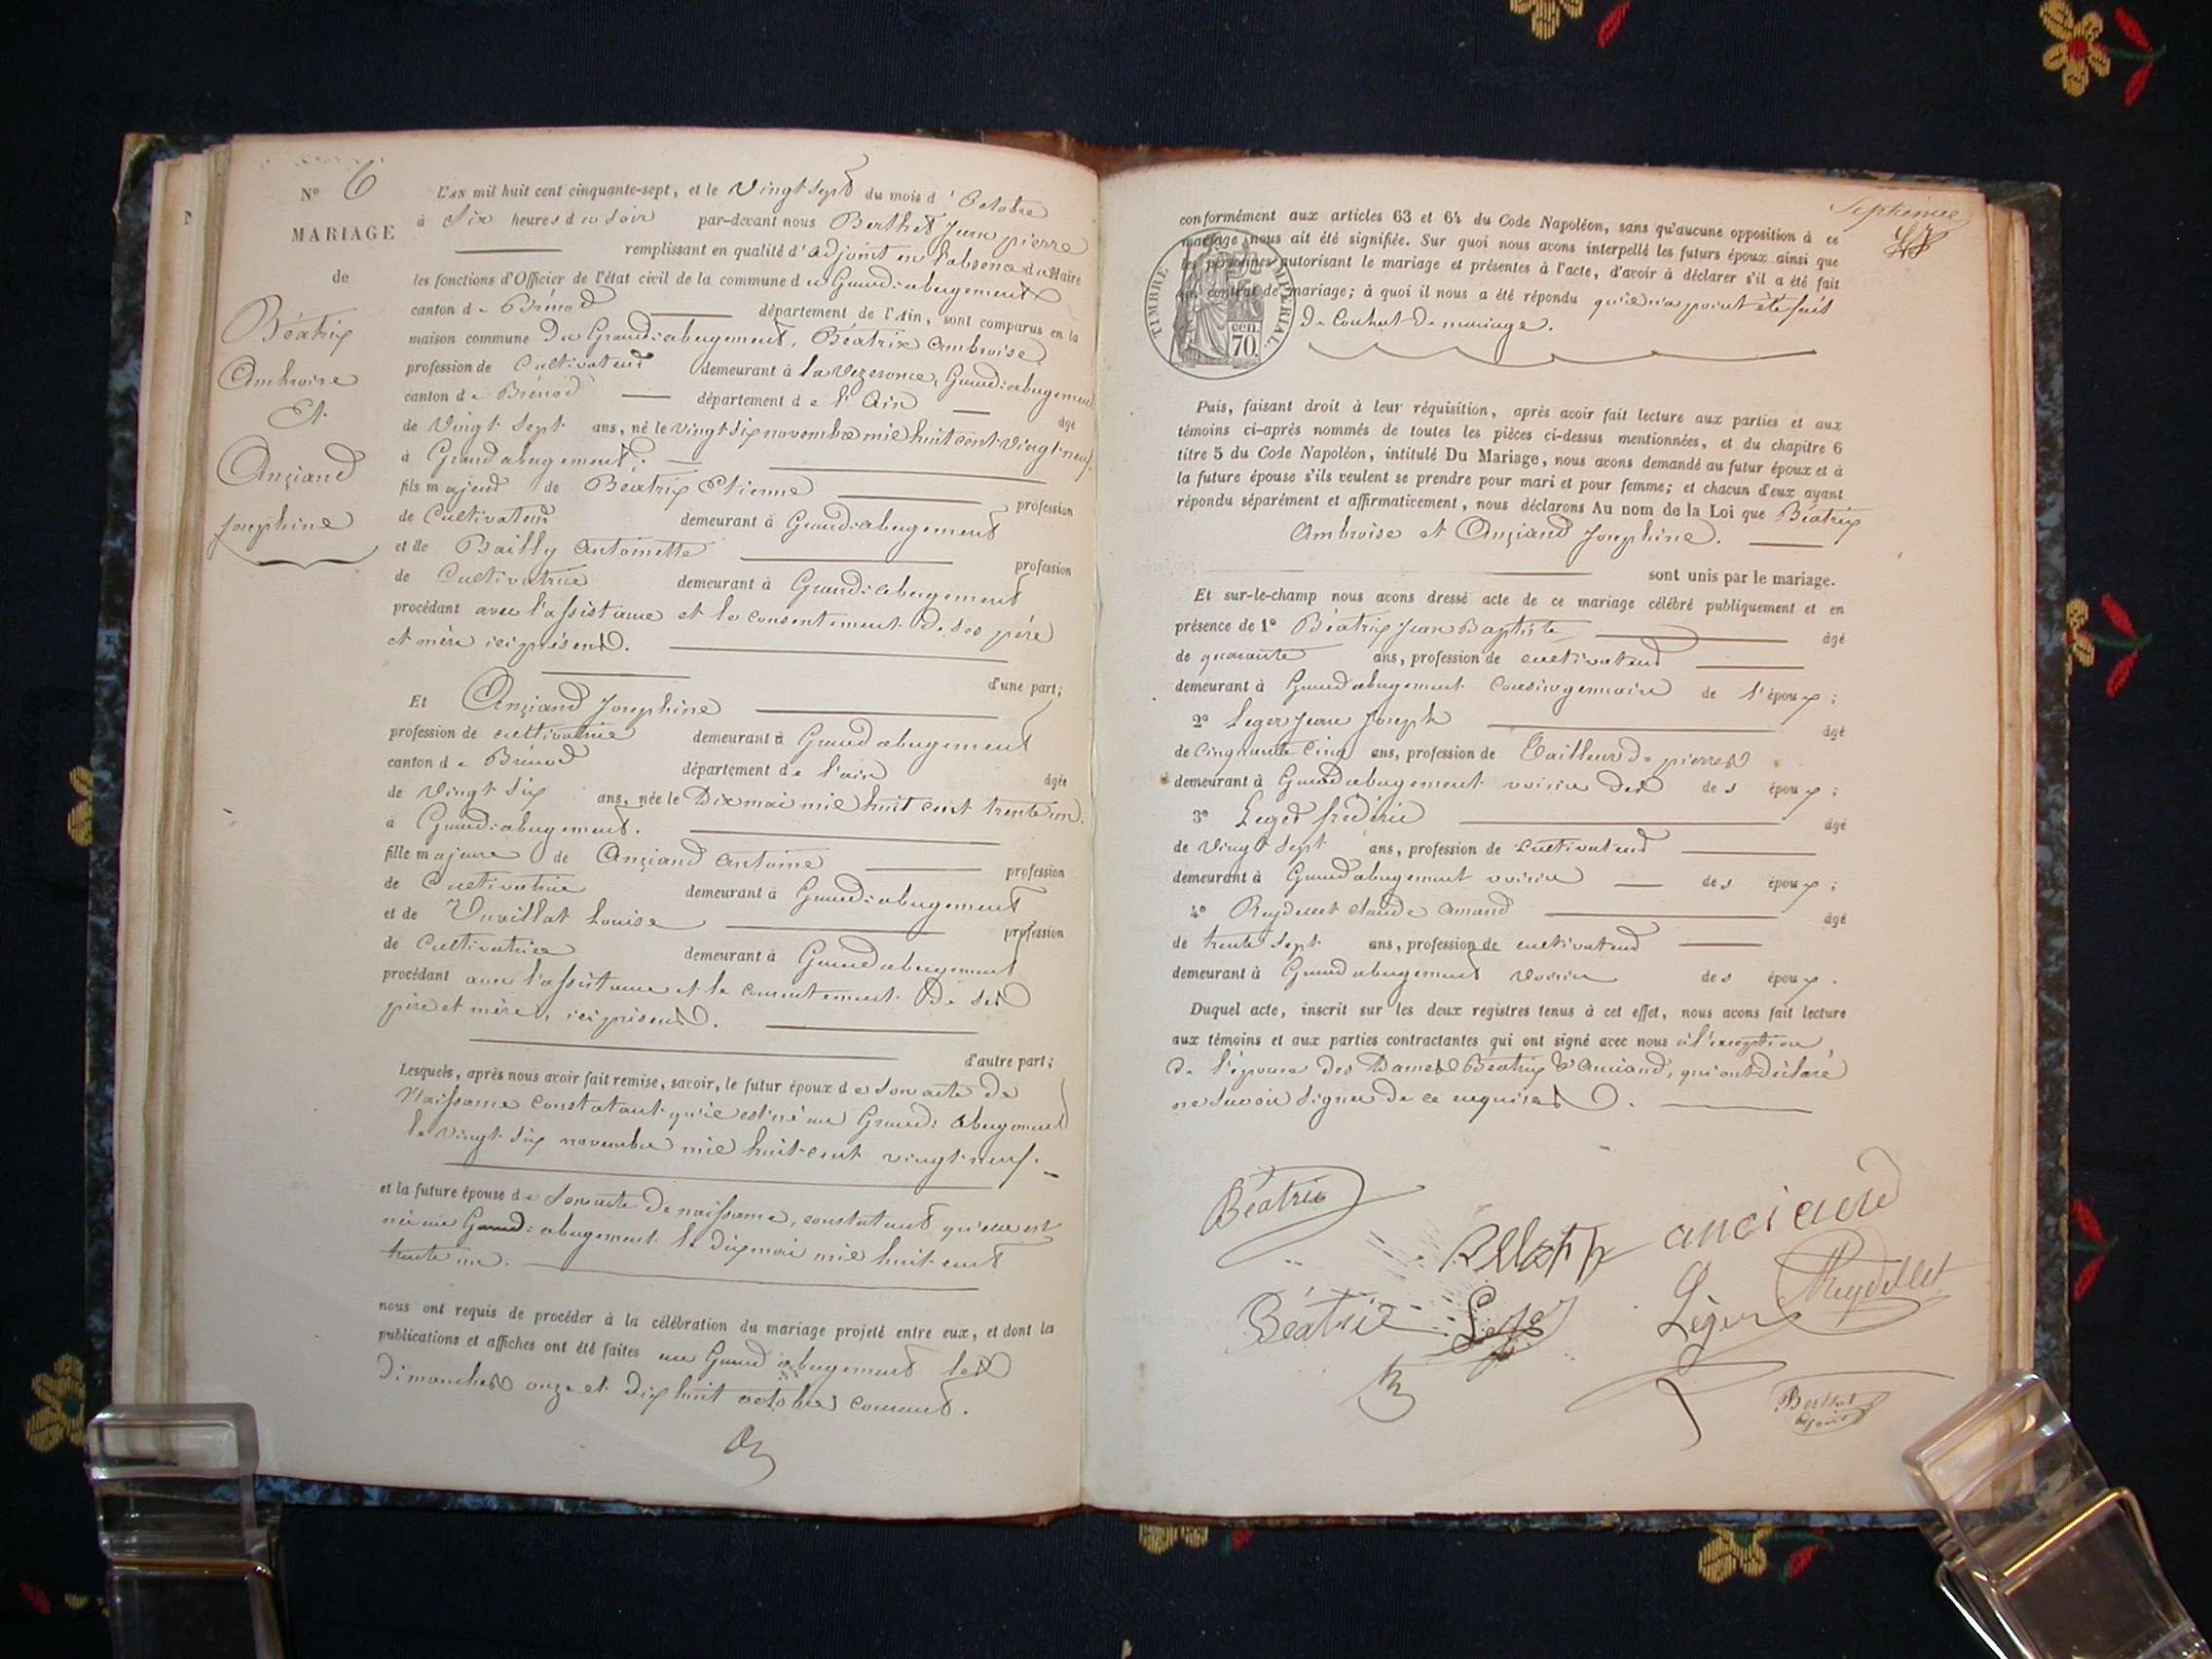 N° 6
MARIAGE
de
Béatrix
Ambroise
Et
Anciand
Josephine
L'AN mil huit cent cinquante-sept, et le vingt sept du mois d'Octobre
à six heures du soir par-devant nous Berthet Jean pierre
remplissant en qualité d'adjoint en l'absence du Maire
les fonctions d'Officier de l'état civil de la commune du Grand-abergement
canton de Brénod département de l'Ain, sont comparus en la
maison commune du Grand-abergement, Béatrix Ambroise
profession de Cultivateur demeurant à la Vezeronce, Grand-abergement
canton de Brénod département de l'Ain âgé
de vingt sept ans, né le vingt six novembre mil huit cent vingt-neuf
à Grand abergement;
fils majeur de Béatrix Etienne profession
de Cultivateur demeurant à Grand-abergement
et de Bailly Antoinette profession
de Cultivatrice demeurant à Grand-abergement
procédant avec l'assistance et le consentement de ses père
et mère ici présents.
d'une part;
Et Anciand Josephine
profession de cultivatrice demeurant à Grand abergement
canton de Brénod département de l'ain âgée
de vingt six ans, née le Dix mai mil huit cent trente un.
à Grand-abergement.
fille majeure de Anciand Antoine profession
de Cultivatrice demeurant à Grand-abergement
et de Vuaillat Louise profession
de Cultivatrice demeurant à Grand abergement
procédant avec l'assistance et le consentement de ses
père et mère, ici présents.
d'autre part;
Lesquels, après nous avoir fait remise, savoir, le futur époux de son acte de
Naissance constatant qu'il est né au Grand-abergement
le vingt six novembre mil huit cent vingt-neuf.
et la future épouse de son acte de naissance, constatant qu'elle est
née au Grand-abergement le dix mai mil huit cent
trente un.
nous ont requis de procéder à la célébration du mariage projeté entre eux, et dont les
publications et affiches ont été faites au Grand abergement les
Dimanches onze et dix huit octobre courant.
Septième
conformément aux articles 63 et 64 du Code Napoléon, sans qu'aucune opposition à ce
mariage nous ait été signifiée. Sur quoi nous avons interpellé les futurs époux ainsi que
les personnes autorisant le mariage et présentes à l'acte, d'avoir à déclarer s'il a été fait
un contrat de mariage; à quoi il nous a été répondu qu'il n'a point été fait
de Contrat de mariage.
TIMBRE IMPÉRIAL
cen.
70.
Puis, faisant droit à leur réquisition, après avoir fait lecture aux parties et aux
témoins ci-après nommés de toutes les pièces ci-dessus mentionnées, et du chapitre 6
titre 5 du Code Napoléon, intitulé Du Mariage, nous avons demandé au futur époux et à
la future épouse s'ils veulent se prendre pour mari et pour femme; et chacun d'eux ayant
répondu séparément et affirmativement, nous déclarons Au nom de la Loi que Béatrix
Ambroise et Anciand Josephine.
sont unis par le mariage.
Et sur-le-champ nous avons dressé acte de ce mariage célébré publiquement et en
présence de 1° Béatrix Jean Baptiste âgé
de quarante ans, profession de cultivateur
demeurant à Grand abergement Cousin germain de l'époux;
2° Leger Jean Joseph âgé
de Cinquante Cinq ans, profession de Tailleur de pierres
demeurant à Grand abergement voisin des des époux;
3° Leger frédéric âgé
de vingt sept ans, profession de Cultivateur
demeurant à Grand abergement voisin des époux;
4° Reydellet claude Amand âgé
de trente sept ans, profession de cultivateur
demeurant à Grand abergement voisin des époux.
Duquel acte, inscrit sur les deux registres tenus à cet effet, nous avons fait lecture
aux témoins et aux parties contractantes qui ont signé avec nous à l'exception
de l'épouse des Dames Béatrix & Anciand, qui ont déclaré
ne savoir signer de ce enquises.
Béatrix
anciand
Reydellet
Béatrix
Léger
Berthet
adjoint